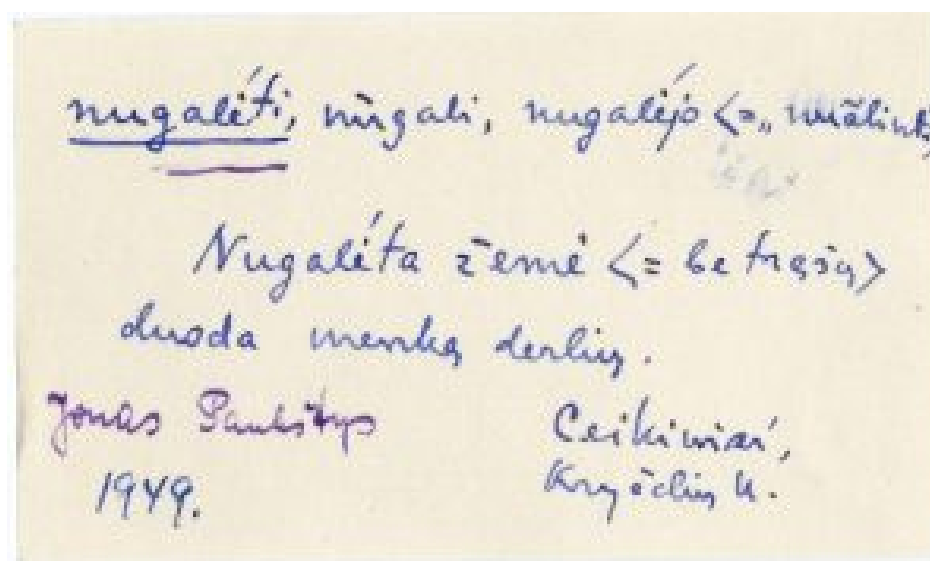 nugalėti, nùgali, nugalėjo <=„ nuãlint
Nugalė́ta žemė <= be trąšų>
duoda menką derlių.
Jonas Paulištys
1949.
Ceikiniai,
Kryčelių k.